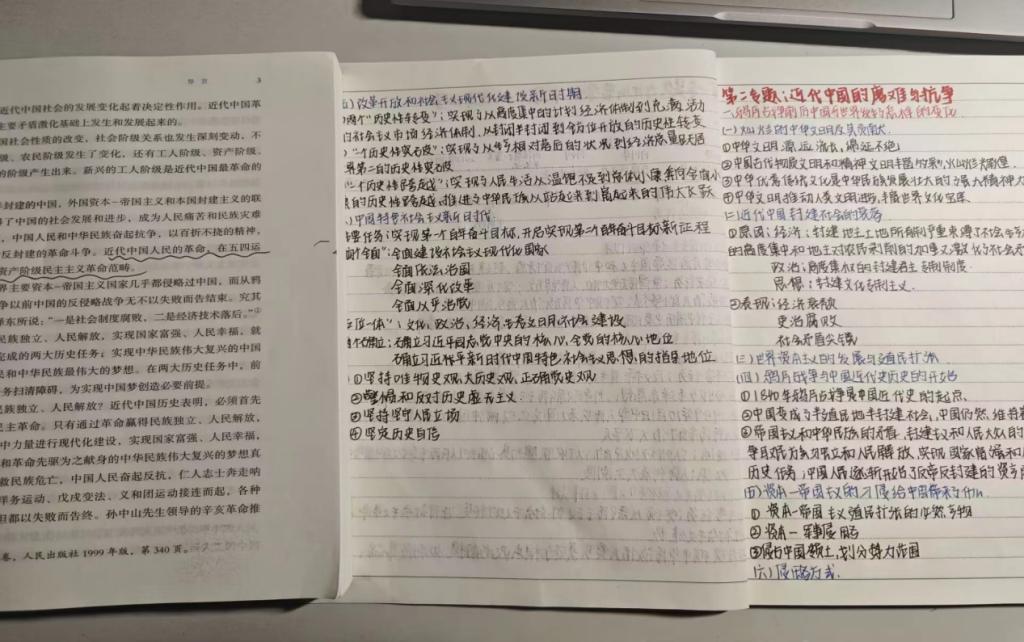 导言 3
近代中国社会的发展变化起着决定性作用。近代中国革
主要矛盾激化基础上发生和发展起来的。
社会性质的改变,社会阶级关系也发生深刻变动,不
级、农民阶级发生了变化,还有工人阶级、资产阶级、
的阶级产生出来。新兴的工人阶级是近代中国最革命的
半封建的中国,外国资本—帝国主义和本国封建主义的联
碍了中国的社会发展和进步,成为人民痛苦和民族灾难
,中国人民和中华民族奋起抗争,以百折不挠的精神,
反封建的革命斗争。近代中国人民的革命,在五四运
资产阶级民主主义革命范畴。
界主要资本—帝国主义国家几乎都侵略过中国,而从鸦
争以前中国的反侵略战争无不以失败而告结束。究其
泽东所说:“一是社会制度腐败,二是经济技术落后。”①
民族独立、人民解放,实现国家富强、人民幸福,就
完成的两大历史任务;实现中华民族伟大复兴的中国
民和中华民族最伟大的梦想。在两大历史任务中,前
务扫清障碍,为实现中国梦创造必要前提。
民族独立、人民解放?近代中国历史表明,必须首先
民主革命。只有通过革命赢得民族独立、人民解放,
中力量进行现代化建设,实现国家富强、人民幸福,
和革命先驱为之献身的中华民族伟大复兴的梦想真
救民族危亡,中国人民奋起反抗,仁人志士奔走呐
洋务运动、戊戌变法、义和团运动接连而起,各种
但都以失败而告终。孙中山先生领导的辛亥革命推
卷,人民出版社 1999 年版,第 340 页。
改革开放和社会主义现代化建设新时期
两个“历史性转变”:实现了从高度集中的计划经济体制到充满活力
的社会主义市场经济体制,从封闭半封闭到全方位开放的历史性转变
“一个历史性突破”:实现了从生产力相对落后的状况到经济总量跃居
界第二的历史性突破
“一个历史性跨越”:实现了人民生活从温饱不足到总体小康、奔向全面小
康的历史性跨越,推进了中华民族从站起来到富起来的伟大飞跃
中国特色社会主义新时代
主要任务:实现第一个百年奋斗目标,开启实现第二个百年奋斗目标新征程
四个全面”:全面建设社会主义现代化国家
全面依法治国
全面深化改革
全面从严治党
五位一体”:文化,政治,经济,生态文明,社会建设
个确立:确立习近平同志党中央的核心,全党的核心地位
确立习近平新时代中国特色社会主义思想的指导地位
①坚持唯物史观,大历史观,正确党史观
②警惕和反对历史虚无主义
③坚持坚守人民立场
④坚定历史自信
第二专题:近代中国的磨难与抗争
一、鸦片战争前后中国和世界
(一)灿烂的中华文明
①中华文明源远流长,绵延不绝
②中国古代物质文明和精神文明
③中华优秀传统文化是中华民族发展壮大的
④中华文明推动人类文明进步,丰富世界文化宝库
(二)近代中国封建社会的衰落
①原因:经济:封建地主土地所有制
的高度集中和地主对农民剥削的加重又激化了社会矛
政治:高度集权的封建君主专制制度
思想:封建文化专制主义
②表现:经济衰敝
吏治腐败
社会矛盾尖锐
(三)世界资本主义的发展与殖民扩张
(四)鸦片战争与中国近代史历史的开始
①1840年鸦片战争是中国近代史的起点
②中国变成了半殖民地半封建社会,中国仍然维持着
③帝国主义和中华民族的矛盾,封建主义和人民大众的
争取民族独立和人民解放,实现国家富强和人
历史任务;中国人民逐渐形成了反帝反封建的资产阶
(五)资本—帝国主义的入侵给中国带来了什么
①资本—帝国主义殖民扩张的必然产物
②资本—军事侵略
③侵占中国领土,划分势力范围
(六)侵略方式